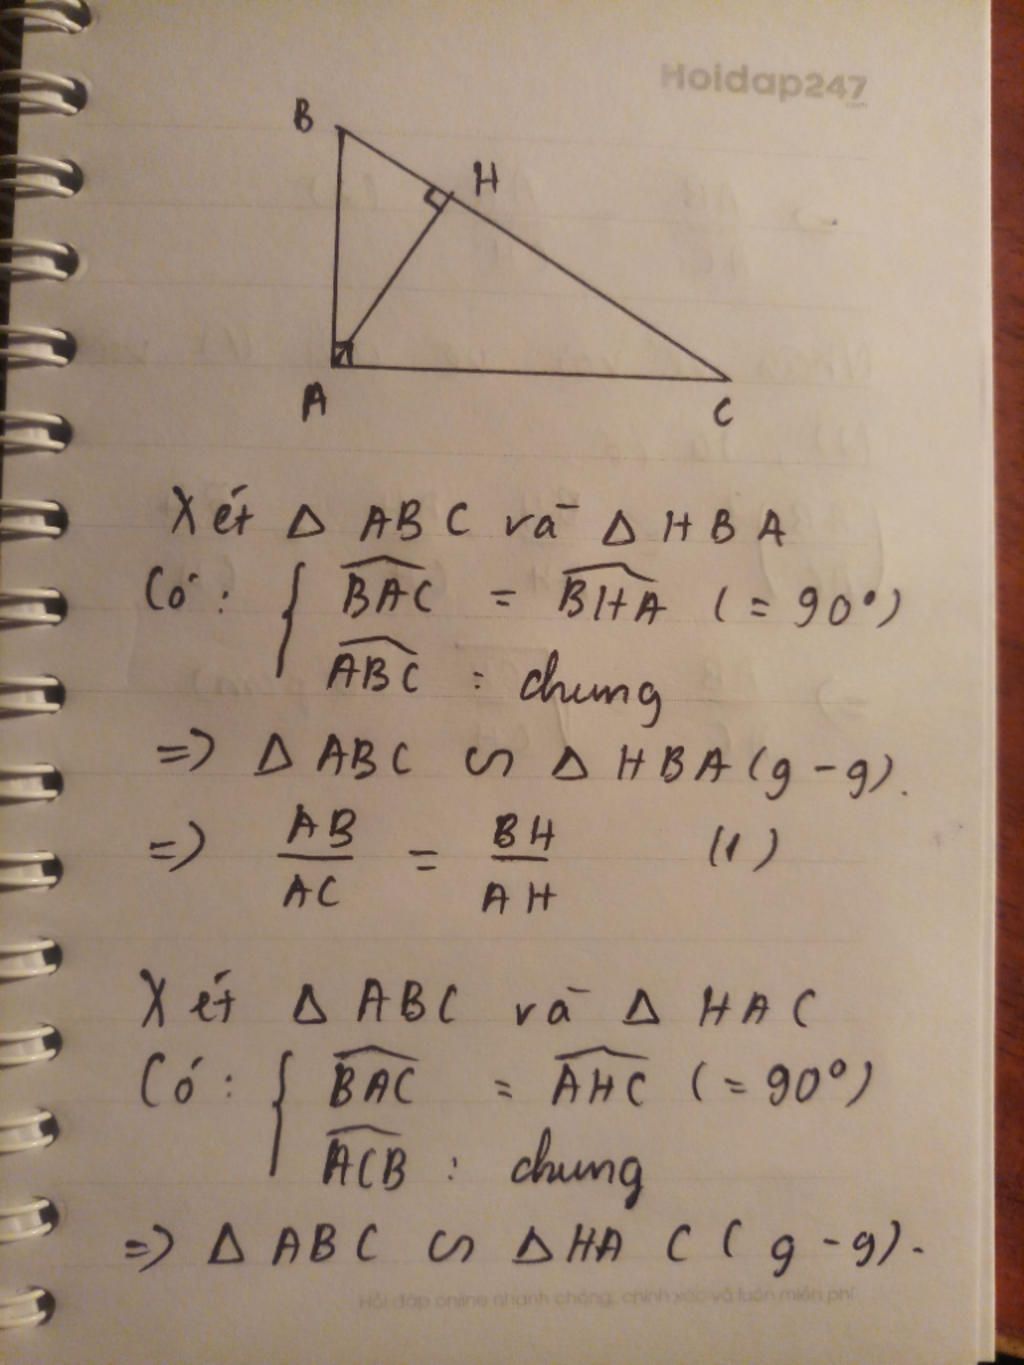 Hoidap247
.com
B
H
A
C
Xét Δ ABC và Δ HBA
Có: { \widehat{BAC} = \widehat{BHA} (= 90°)
\widehat{ABC} : chung
=> Δ ABC ∽ Δ HBA (g - g).
=> \frac{AB}{AC} = \frac{BH}{AH} (1)
Xét Δ ABC và Δ HAC
Có: { \widehat{BAC} = \widehat{AHC} (= 90°)
\widehat{ACB} : chung
=> Δ ABC ∽ Δ HAC (g - g).
Hỏi đáp online nhanh chóng, chính xác và luôn miễn phí